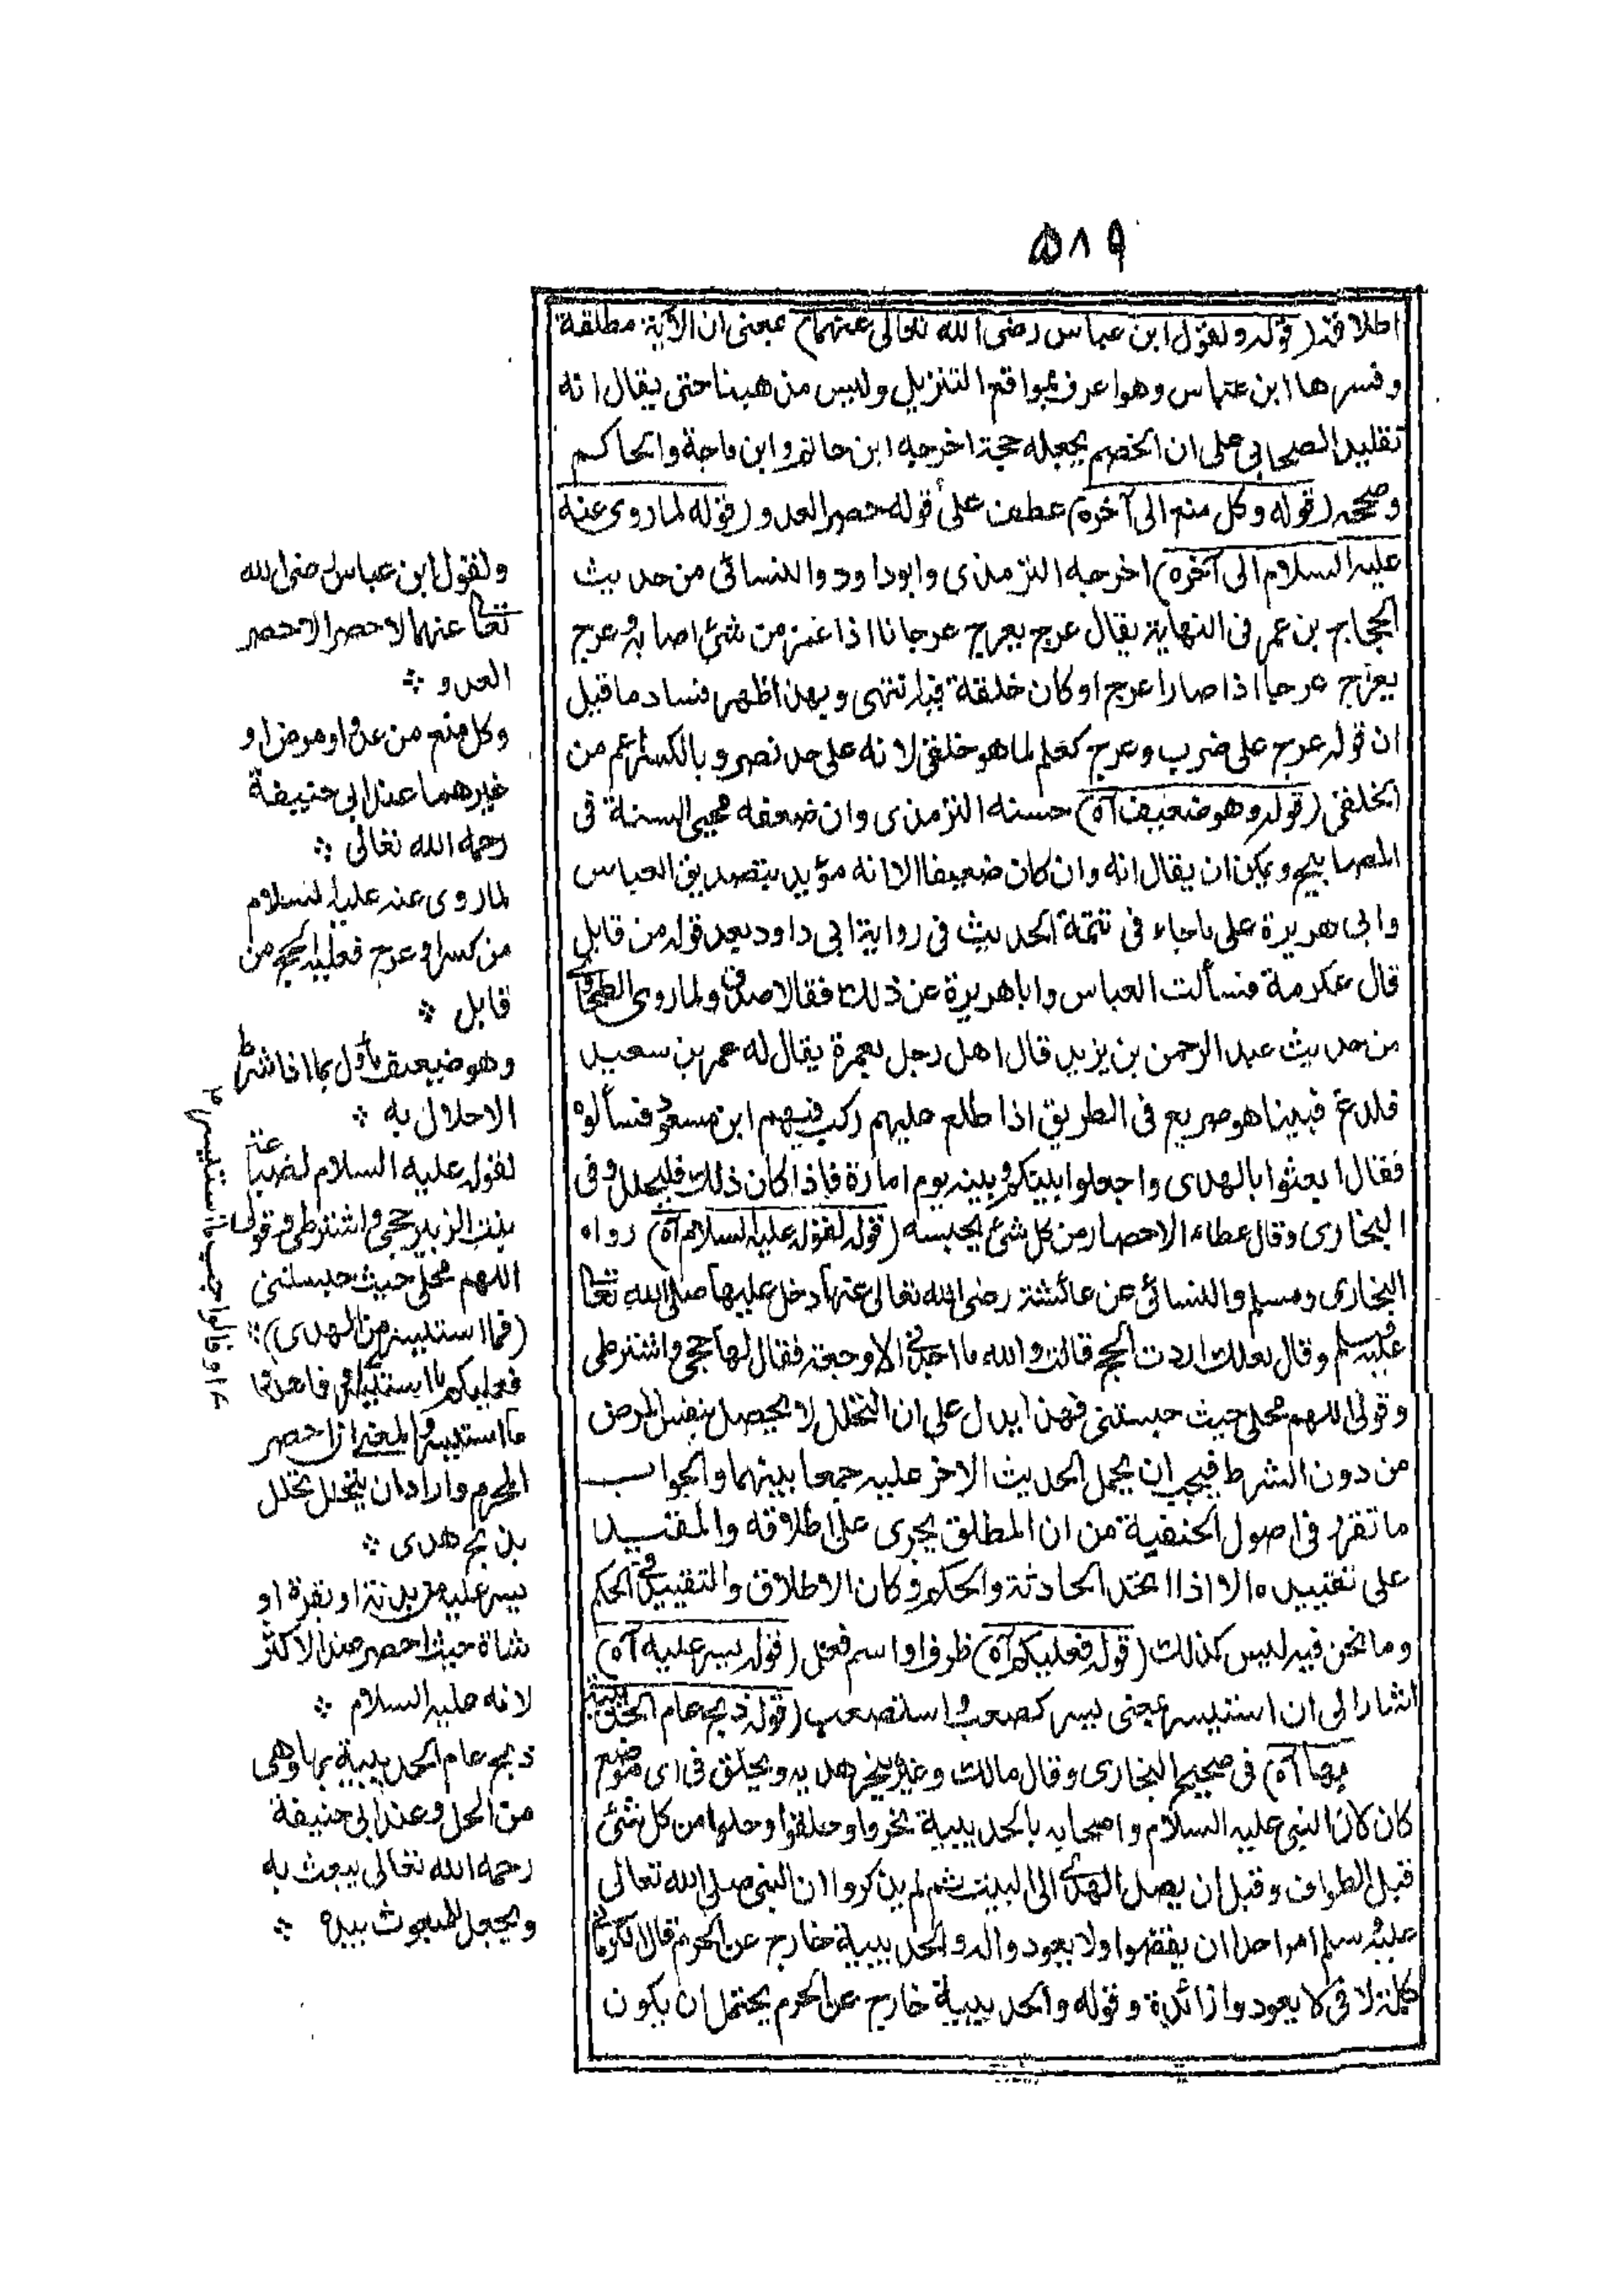 ٥٨٩
اطلاقه (قوله ولقول ابن عباس رضى الله تعالى عنهما) بمعنى ان الآية مطلقة
وفسرها ابن عباس وهو اعرف بمواقع التنزيل وليس مذهبنا حتى يقال انه
تقليد الصحابى على ان الخصم يجعله حجة اخرجه ابن حاتم وابن ماجة والحاكم
وصححه (قوله وكل منع الى آخره) عطف على قوله حصر العدو (قوله لما روى عنه
عليه السلام الى آخره) اخرجه الترمذى وابوداود والنسائى من حديث
الحجاج بن عمر فى النهاية يقال عرج يعرج عرجانا اذا غمز من شئ اصابه وعرج
يعرج عرجا اذا صار اعرج او كان خلقة فيه انتهى وبهذا ظهر فساد ما قيل
ان قوله عرج على ضرب وعرج كعلم لما هو خلقى لانه على حد نصر وبالكسر اعم من
الخلقى (قوله وهو ضعيف آه) حسنه الترمذى وان ضعفه محيى السنة فى
المصابيح ويمكن ان يقال انه وان كان ضعيفا الا انه مؤيد بتصديق العباس
وابى هريرة على ما جاء فى تتمة الحديث فى رواية ابى داود بعد قوله من قابل
قال عكرمة فسألت العباس وابا هريرة عن ذلك فقالا صدق ولما روى الطحاوى
من حديث عبد الرحمن بن يزيد قال اهل رجل بعمرة يقال له عمر بن سعيد
فلدغ فبينا هو صريع فى الطريق اذا طلع عليهم ركب فيهم ابن مسعود فسألوه
فقال ابعثوا بالهدى واجعلوا بينكم وبينه يوم امارة فاذا كان ذلك فليحلل وفى
البخارى وقال عطاء الاحصار من كل شئ يحبسه (قوله لقوله عليه السلام آه) رواه
البخارى ومسلم والنسائى عن عائشة رضى الله تعالى عنها دخل عليها صلى الله تعالى
عليه وسلم وقال لعلك اردت الحج قالت والله ما اجدنى الا وجعة فقال لها حجى واشترطى
وقولى اللهم محلى حيث حبستنى فهذا يدل على ان التحلل لا يحصل بنفس المرض
من دون الشرط فيجب ان يحمل الحديث الاخر عليه جمعا بينهما والجواب
ما تقرر فى اصول الحنفية من ان المطلق يجرى على اطلاقه والمقيد
على تقييده الا اذا اتحد الحادثة والحكم وكان الاطلاق والتقييد فى الحكم
وما نحن فيه ليس كذلك (قوله فعليكم آه) ظرف او اسم فعل (قوله يسر عليه آه)
اشار الى ان استيسر بمعنى يسر كصعب واستصعب (قوله ذبح عام الحديبية
بها آه) فى صحيح البخارى وقال مالك وغيره ينحر هديه ويحلق فى اى موضع
كان لان النبى عليه السلام واصحابه بالحديبية نحروا وحلقوا وحلوا من كل شئ
قبل الطواف وقبل ان يصل الهدى الى البيت ثم لم يذكروا ان النبى صلى الله تعالى
عليه وسلم امر احدا ان يقضوا ولا يعودوا له والحديبية خارج عن الحرم قال الكرمانى
كلمة لا فى لا يعودوا زائدة وقوله والحديبية خارج عن الحرم يحتمل ان يكون
ولقول ابن عباس رضى الله
تعالى عنهما لا حصر الا حصر
العدو
وكل منع من عدو او مرض او
غيرهما عند ابى حنيفة
رحمه الله تعالى
لما روى عنه عليه السلام
من كسر او عرج فعليه الحج من
قابل
وهو ضعيف ماول بما اذا شرط
الاحلال به
لقوله عليه السلام لضباعة
بنت الزبير حجى واشترطى وقولى
اللهم محلى حيث حبستنى
(فما استيسر من الهدى)
فعليكم ما استيسر او فاهدوا
ما استيسر والمعنى ان احصر
المحرم واراد ان يتحلل تحلل
بذبح هدى
يسر عليه من بدنة او بقرة او
شاة حيث احصر عند الاكثر
لانه عليه السلام
ذبح عام الحديبية بها وهى
من الحل وعند ابى حنيفة
رحمه الله تعالى يبعث به
ويجعل للمبعوث بيده
او فالواجب ما استيسر